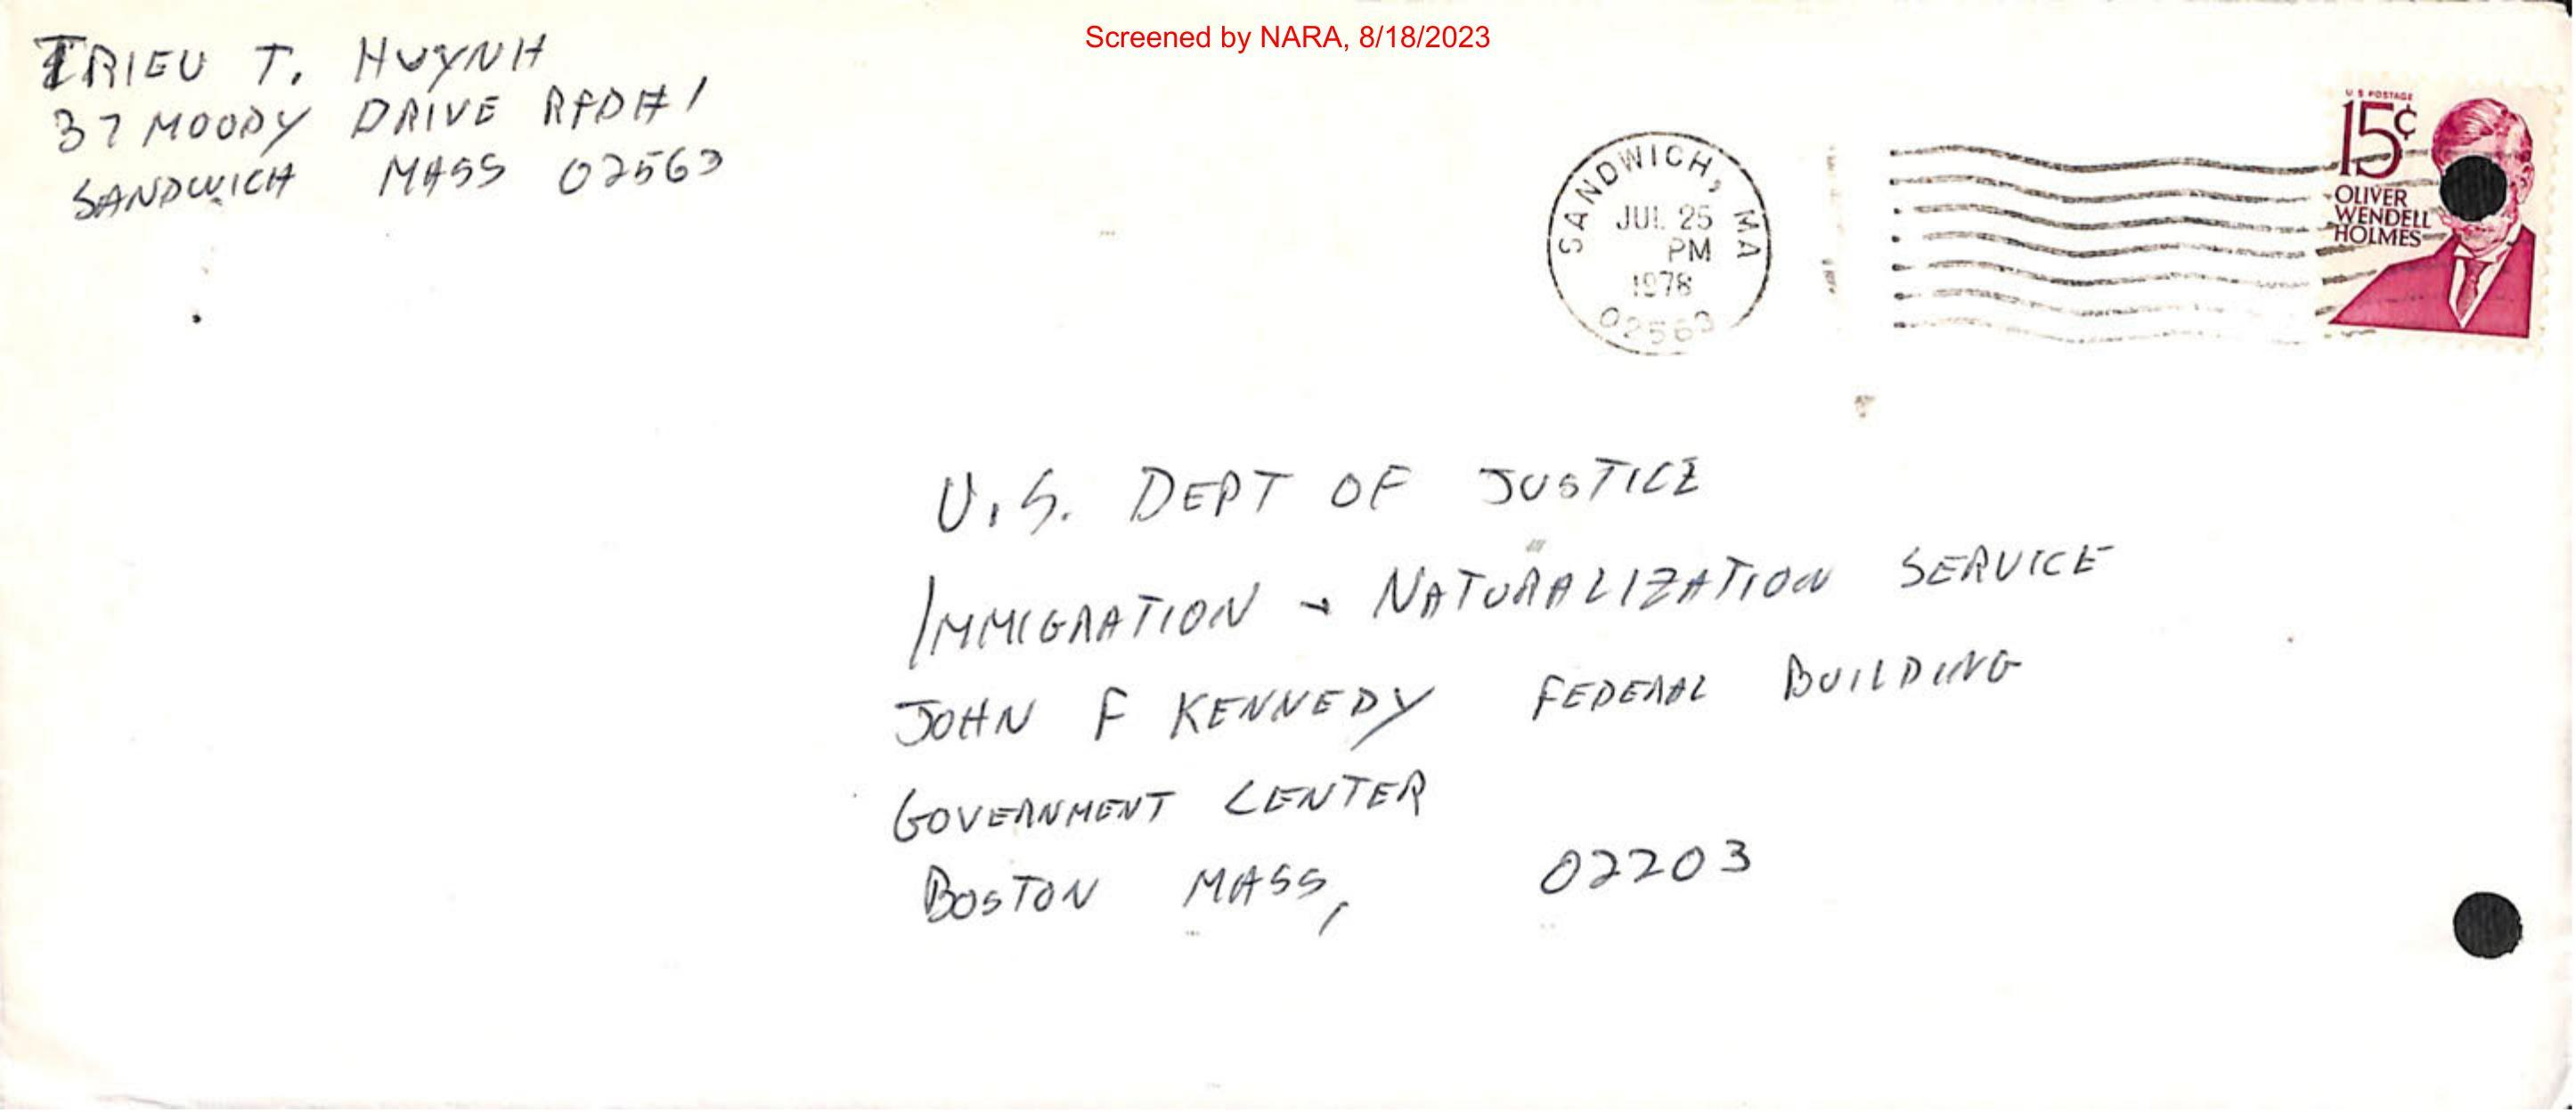 Screened by NARA, 8/18/2023
TRIEU T. HUYNH
37 MOODY DRIVE RFD#1
SANDWICH MASS 02563
SANDWICH, MA
JUL 25
PM
1978
02563
U S POSTAGE
15¢
OLIVER
WENDELL
HOLMES
U.S. DEPT OF JUSTICE
IMMIGRATION + NATURALIZATION SERVICE
JOHN F KENNEDY FEDERAL BUILDING
GOVERNMENT CENTER
BOSTON MASS, 02203